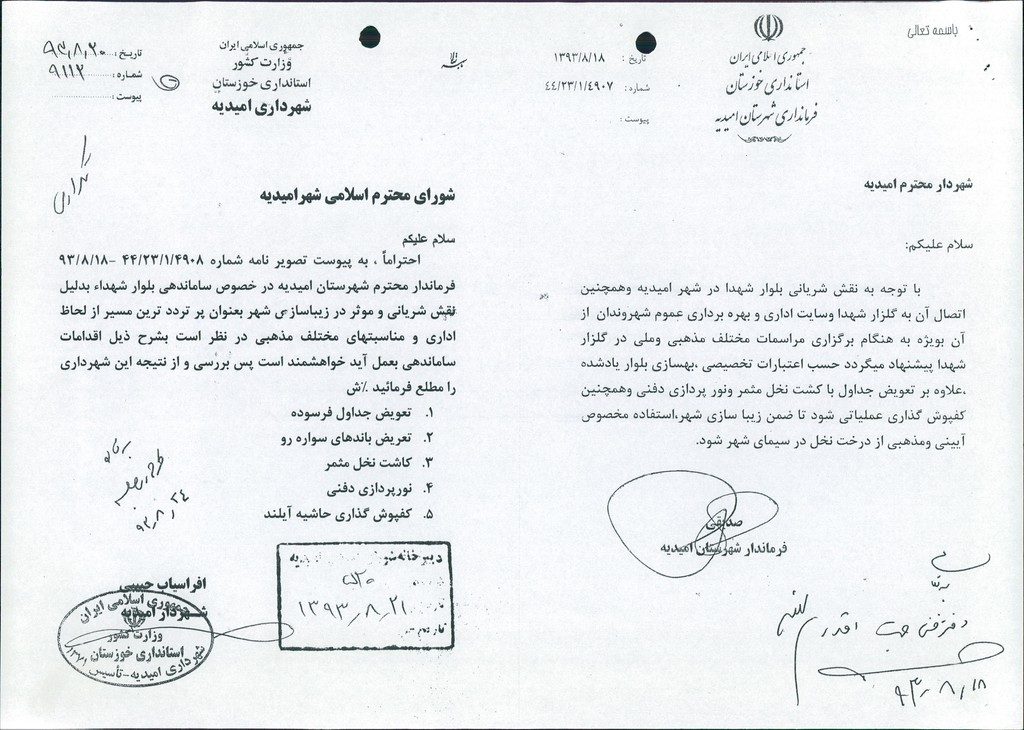 باسمه تعالی
جمهوری اسلامی ایران
استانداری خوزستان
فرمانداری شهرستان امیدیه
تاریخ : ۱۳۹۳/۸/۱۸
شماره : ۴۴/۲۳/۱/۴۹۰۷
پیوست :
شهردار محترم امیدیه
سلام علیکم:
با توجه به نقش شریانی بلوار شهدا در شهر امیدیه وهمچنین
اتصال آن به گلزار شهدا وسایت اداری و بهره برداری عموم شهروندان از
آن بویژه به هنگام برگزاری مراسمات مختلف مذهبی وملی در گلزار
شهدا پیشنهاد میگردد حسب اعتبارات تخصیصی ،بهسازی بلوار یادشده
،علاوه بر تعویض جداول با کشت نخل مثمر ونور پردازی دفنی وهمچنین
کفپوش گذاری عملیاتی شود تا ضمن زیبا سازی شهر،استفاده مخصوص
آیینی ومذهبی از درخت نخل در سیمای شهر شود.
صدیقی
فرماندار شهرستان امیدیه
دفتر فنی جهت اقدام
۹۳/۸/۱۸
جمهوری اسلامی ایران
وزارت کشور
استانداری خوزستان
شهرداری امیدیه
تاریخ : ۹۳/۸/۲۰
شماره : ۹۱۱۲
پیوست :
شورای محترم اسلامی شهرامیدیه
سلام علیکم
احتراماً ، به پیوست تصویر نامه شماره ۴۴/۲۳/۱/۴۹۰۸ -۹۳/۸/۱۸
فرماندار محترم شهرستان امیدیه در خصوص ساماندهی بلوار شهداء بدلیل
نقش شریانی و موثر در زیباسازی شهر بعنوان پر تردد ترین مسیر از لحاظ
اداری و مناسبتهای مختلف مذهبی در نظر است بشرح ذیل اقدامات
ساماندهی بعمل آید خواهشمند است پس بررسی و از نتیجه این شهرداری
را مطلع فرمائید ٪ش
۱. تعویض جداول فرسوده
۲. تعریض باندهای سواره رو
۳. کاشت نخل مثمر
۴. نورپردازی دفنی
۵. کفپوش گذاری حاشیه آیلند
۹۳/۸/۲۴
افراسیاب حبیبی
شهردار امیدیه
جمهوری اسلامی ایران
وزارت کشور
استانداری خوزستان
شهرداری امیدیه-تأسیس ۱۳۷۱
دبیرخانه
۱۳۹۳/۸/۲۱